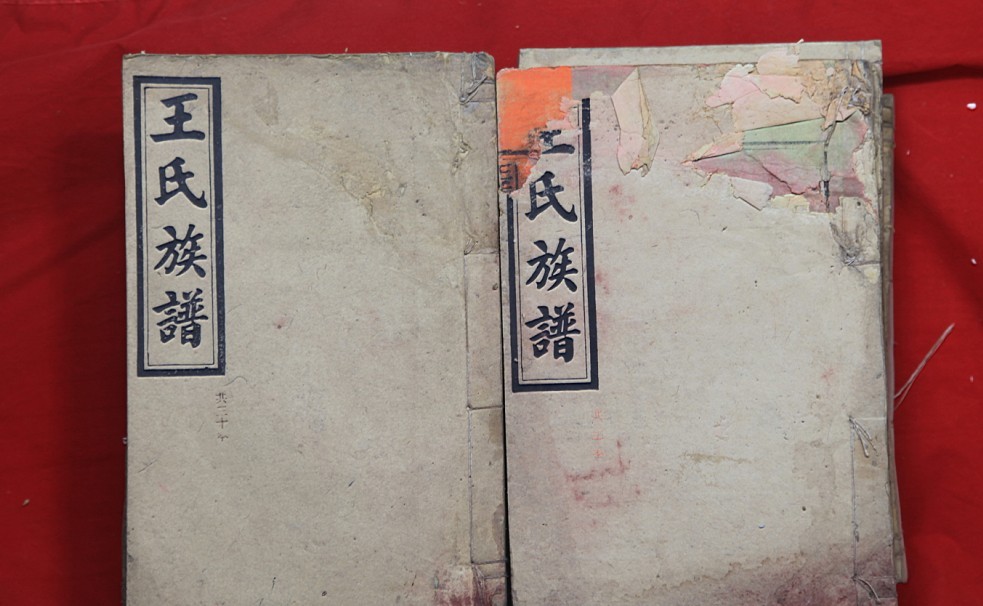 王氏族譜
共二十
氏族譜